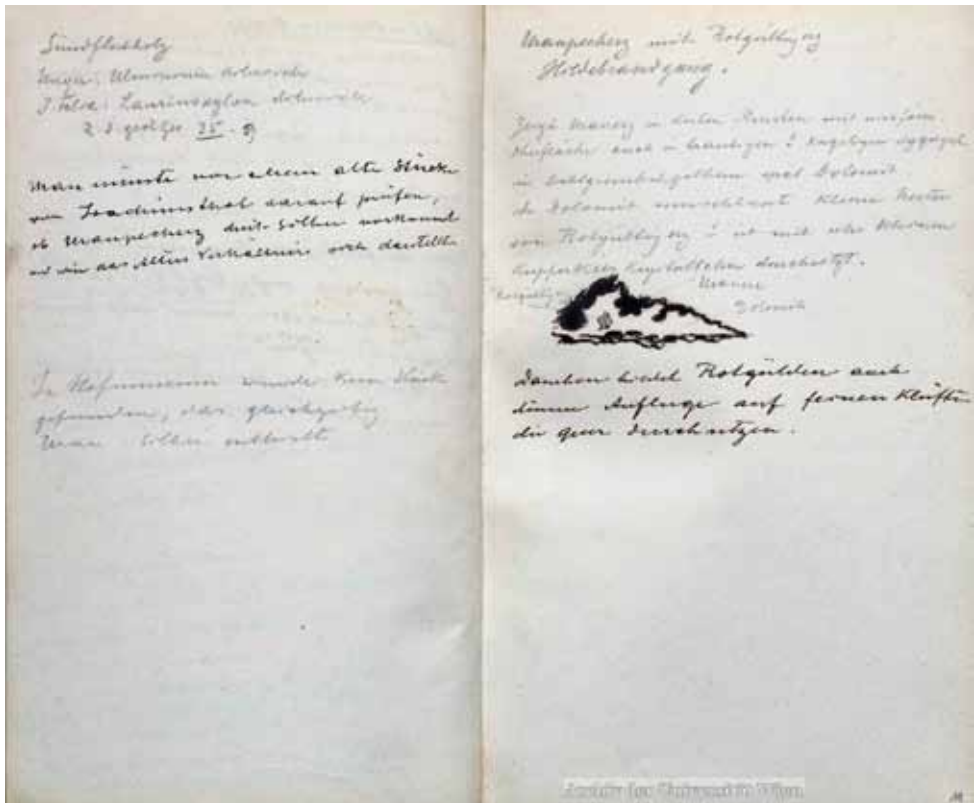 Sündfluthholz
Unger: Ulminium diluviale
J. Felix: Laurinoxylon diluviale
Z. d. geol. Ges. 35. 59
Man müsste vor allem alte Stücke
von Joachimsthal darauf prüfen,
ob Uranpecherz mit Silber vorkommt
und wie das Alters Verhältnis sich darstellt
Im Hofmuseum wurde kein Stück
gefunden, das gleichzeitig
Uran Silber enthält
Uranpecherz mit Rotgültigerz
Hildebrandgang.
Zeigt Uranerz in derben Rinden mit
Oberfläche auch in traubigen & kugeligen
in Dolomit
Dolomit umschliesst kleine Nester
von Rotgültigerz & ist mit sehr kleinen
Kupferkies Kryställchen durchsetzt.
Rotgültigerz
Uranerz
Dolomit
Daneben bildet Rotgülden auch
dünne Anflüge auf feinen Klüften
die quer durchsetzen.
Archiv der Universität Wien